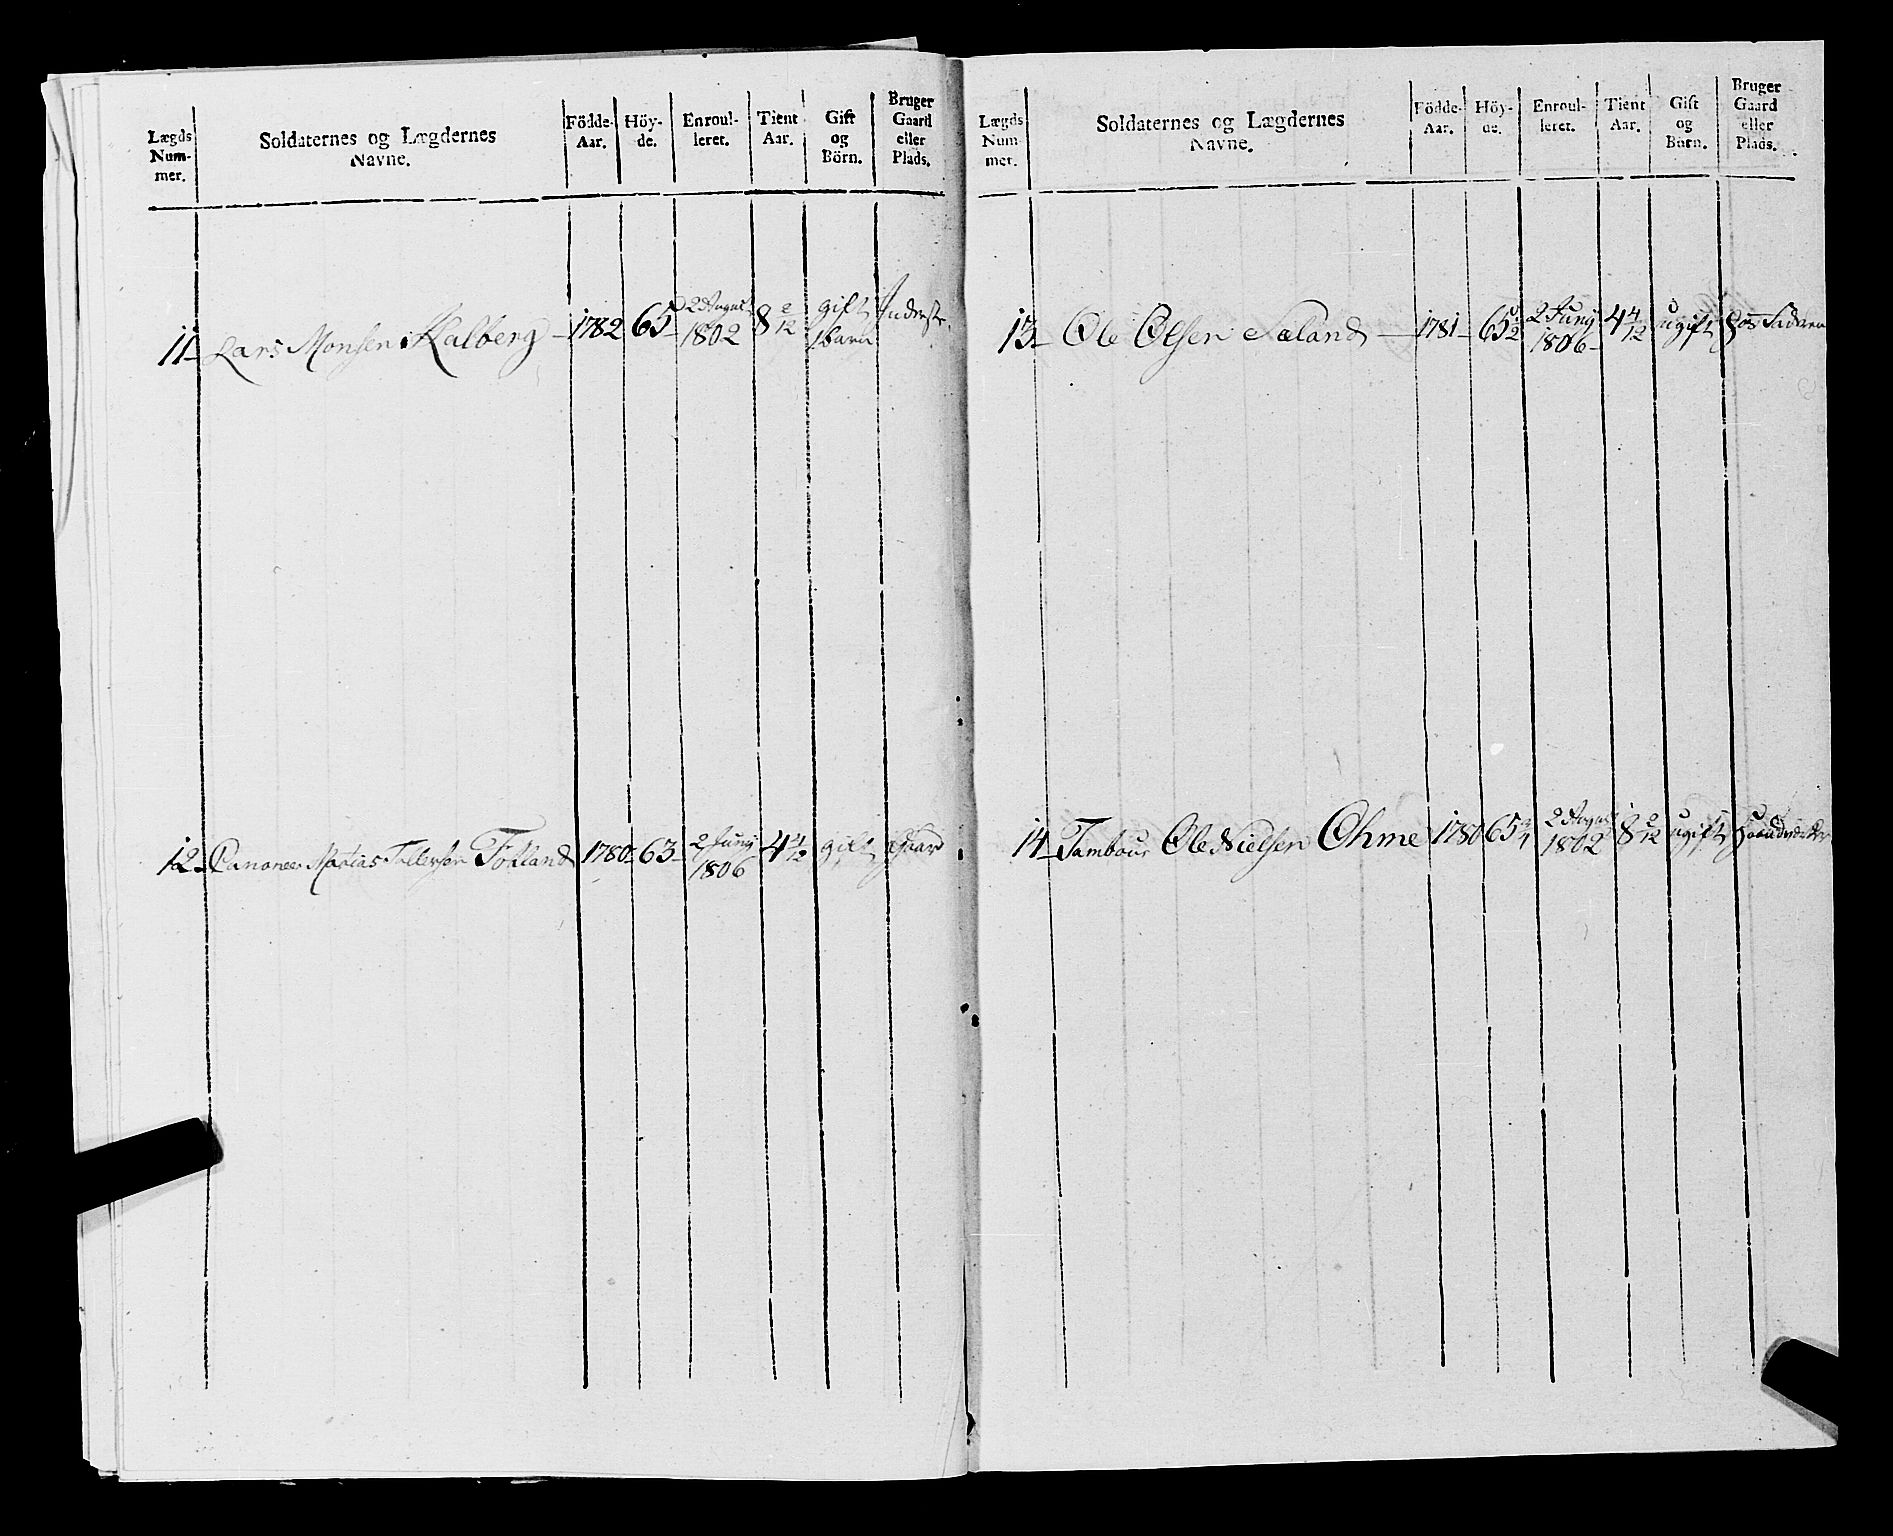 Lægds Num- mer. Soldaternes og Lægdernes Navne. Födde- Aar. Höy- de. Enroul- leret. Tient Aar. Gift og Börn. Bruger Gaard eller Plads.
11 Lars Monsen Kalberg 1782 65 2 August 1802 8 2/12 gift 1 barn Inderste
12 Canoneer Matias Tollefsen Fotland 1780 63 2 Juny 1806 4 4/12 gift Gaard
Lægds Num- mer. Soldaternes og Lægdernes Navne. Födde- Aar. Höy- de. Enroul- leret. Tient Aar. Gift og Börn. Bruger Gaard eller Plads.
13 Ole Olsen Sæland 1781 65 1/2 2 Juny 1806 4 4/12 ugift hos Faderen
14 Tambour Ole Nielsen Ohme 1780 65 2 August 1802 8 2/12 ugift